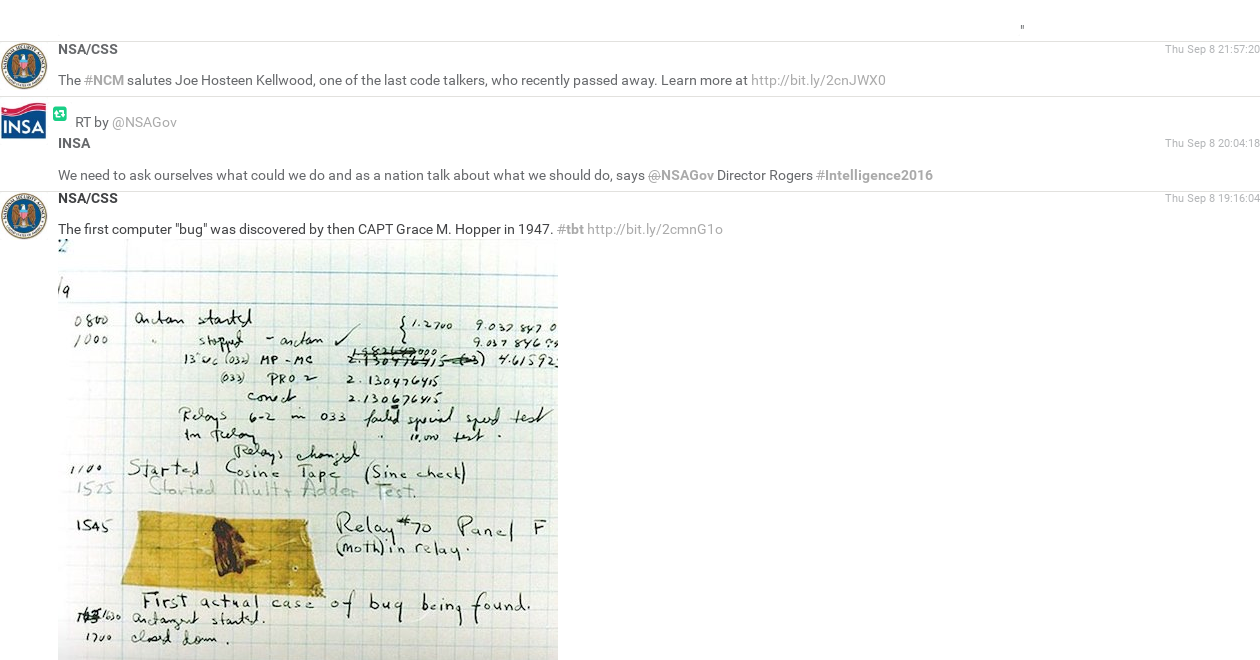 "
NSA/CSS
Thu Sep 8 21:57:20
The #NCM salutes Joe Hosteen Kellwood, one of the last code talkers, who recently passed away. Learn more at http://bit.ly/2cnJWX0
INSA
RT by @NSAGov
INSA
Thu Sep 8 20:04:18
We need to ask ourselves what could we do and as a nation talk about what we should do, says @NSAGov Director Rogers #Intelligence2016
NSA/CSS
Thu Sep 8 19:16:04
The first computer "bug" was discovered by then CAPT Grace M. Hopper in 1947. #tbt http://bit.ly/2cmnG1o
/9
0800 arctan started { 1.2700 9.037 847 0
1000 " stopped - arctan ✓ 9.037 846
13"uc (032) MP - MC 4.61592
(033) PRO 2 2.130476415
correct 2.130676415
Relays 6-2 in 033 failed special speed test
In Relay " 10,000 test .
Relays changed
1100 Started Cosine Tape (Sine check)
1525 Started Mult + Adder Test.
1545 Relay #70 Panel F
(moth) in relay.
First actual case of bug being found.
1630 arctangent started.
1700 closed down.